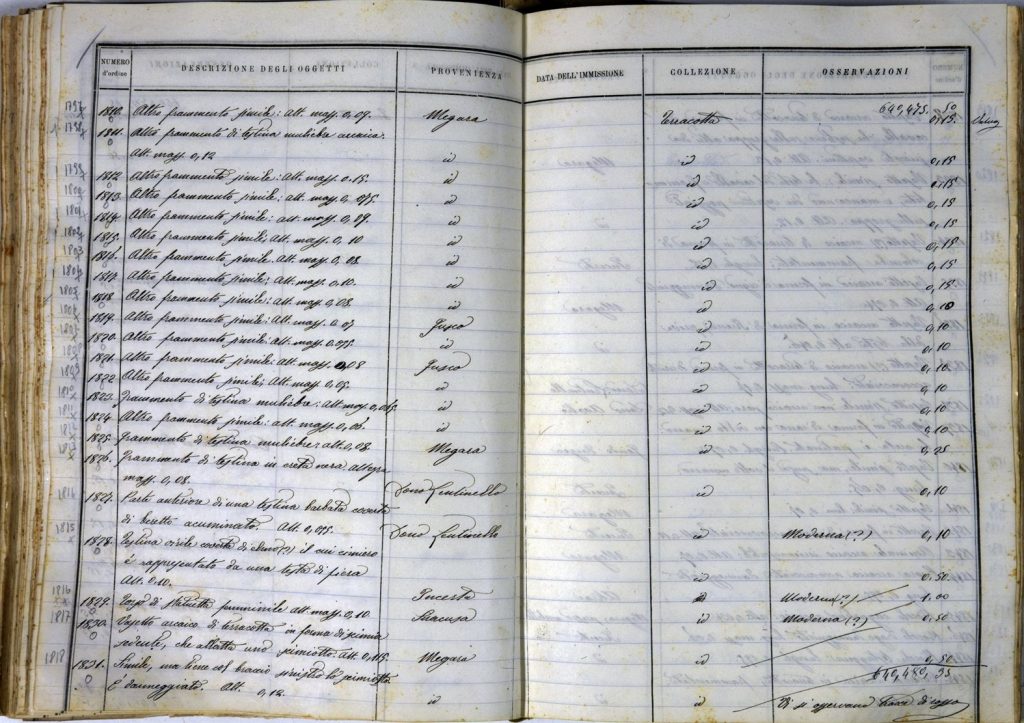 NUMERO d'ordine DESCRIZIONE DEGLI OGGETTI PROVENIENZA DATA DELL'IMMISSIONE COLLEZIONE OSSERVAZIONI
640,475. 50
1810. Altro frammento simile: alt. mass. 0,07. Megara Terracotta 0,15.
1811. Altro frammento di testina muliebre arcaica.
Alt. mass. 0,12 id id 0,15
1812. Altro frammento simile: Alt. mass. 0.15. id id 0,15
1813. Altro frammento simile: alt. mass. 0,075. id id 0,15
1814. Altro frammento simile: alt. mass. 0,07. id id 0,15
1815. Altro frammento simile: alt. mass. 0,10 id id 0,15
1816. Altro frammento simile: alt. mass. 0,08. id id 0,15
1817. Altro frammento simile: alt. mass. 0,10. id id 0,15
1818. Altro frammento simile: alt. mass. 0,08 id id 0,10
1819. Altro frammento simile: Alt. mass. 0,07 Fusco id 0,10
1820. Altro frammento simile: alt. mass. 0,075. id id 0,10
1821. Altro frammento simile: alt. mass. 0,08 Fusco id 0,10
1822. Altro frammento simile; Alt. mass. 0,05. id id 0,10
1823. Frammento di testina muliebre: alt. mass. 0,065 id id 0,10
1824. Altro frammento simile: alt. mass. 0,06 id id 0,10
1825. Frammento di testina muliebre: alt. 0,08. Megara id 0,25
1826. Frammento di testina in creta nera altezza
mass. 0,08. Dono Lentinello id 0,10
1827. Parte anteriore di una testina barbata coverta
di beretto acuminato. Alt. 0,075. Dono Lentinello id Moderna (?) 0,10
1828. Testina virile coverta di elmo (?) il cui cimiero
è rappresentato da una testa di fiera
Alt. 0.10. id 0,50
1829. Torso di statuetta femminile alt. mass. 0,10 Incerta id Moderna (?) 1.00
1830. Vasetto arcaico di terracotta in forma di scimia Siracusa id Moderna (?) 0,50
sedente, che allatta uno scimiotto. Alt. 0,115 Megara id 0,50
1831. Simile, ma tiene col braccio sinistro lo scimiotto 640,480, 35
È danneggiato. Alt. 0,12 id id Vi si osservano tracce di rosso